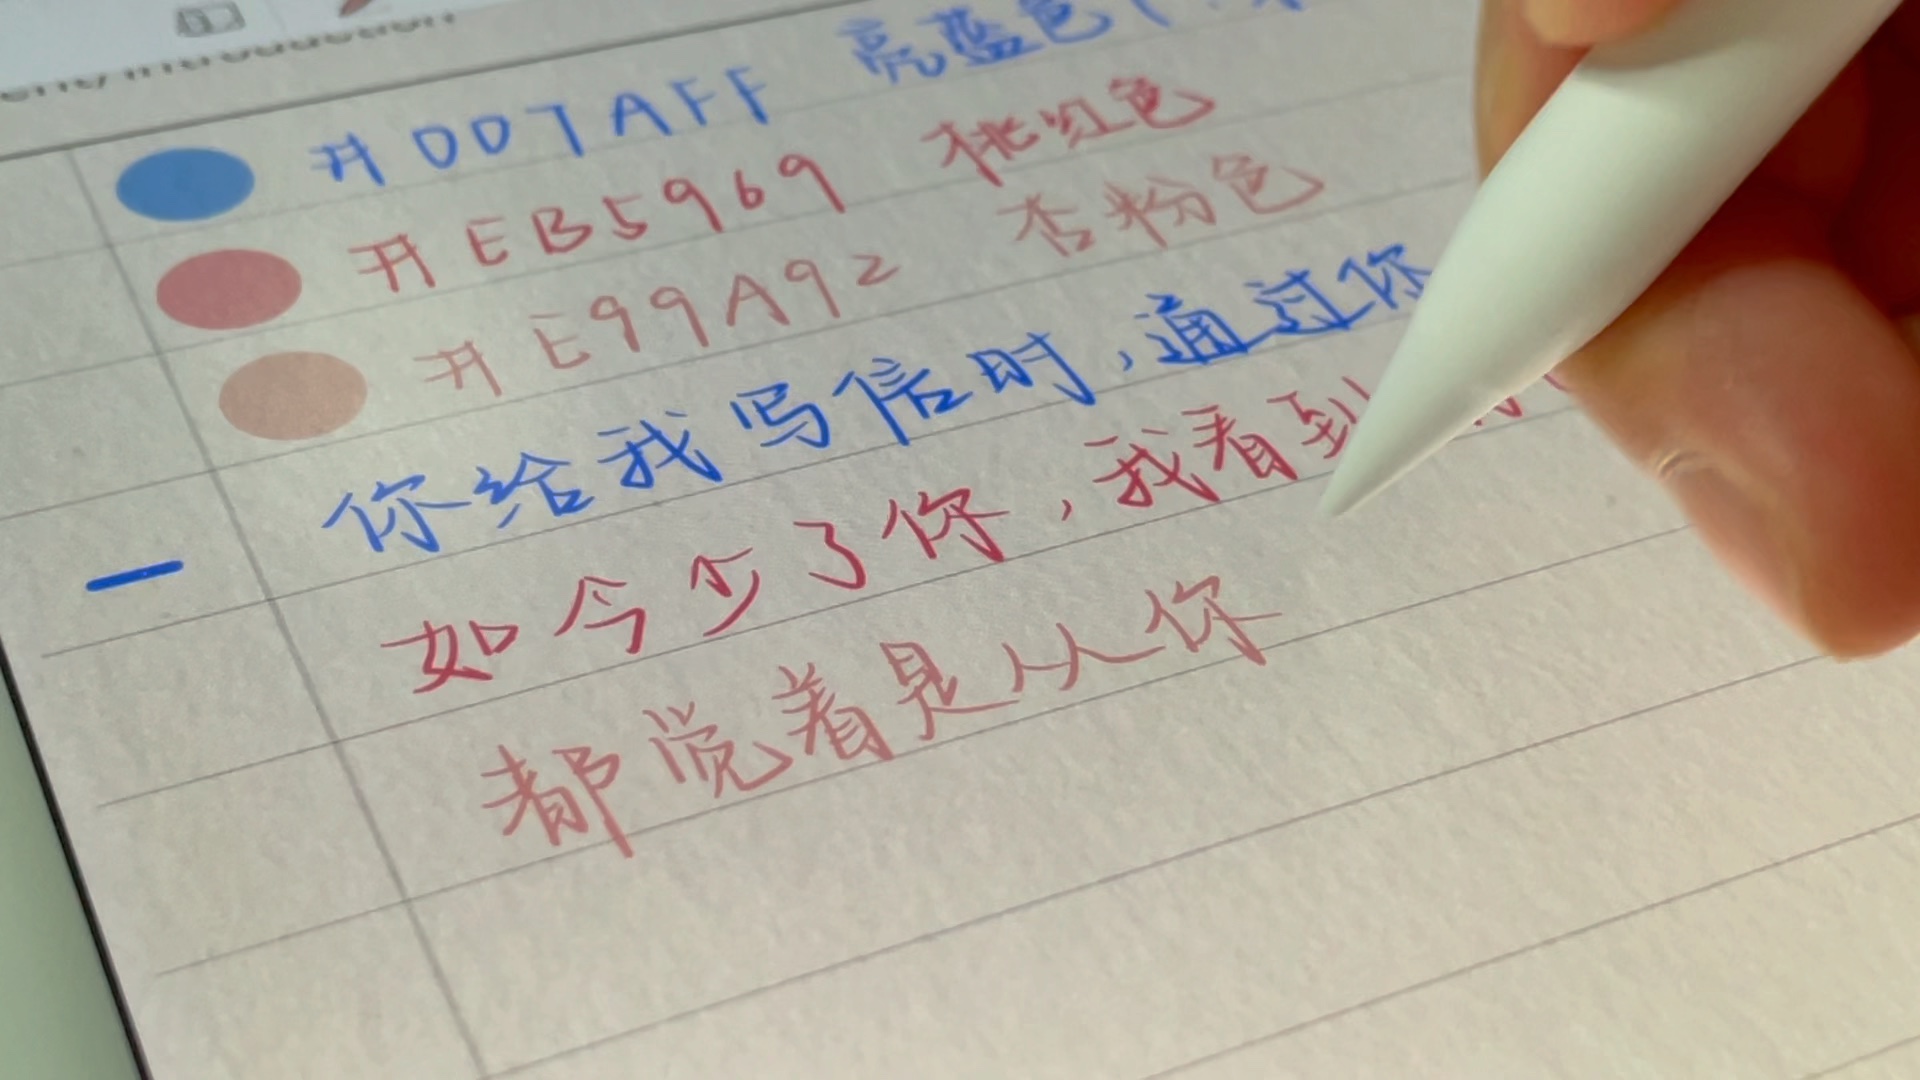 #007AFF 亮蓝色
#EB5969 桃红色
#E99A92 杏粉色
你给我写信时,通过你
如今少了你,我看到
都觉着是从你